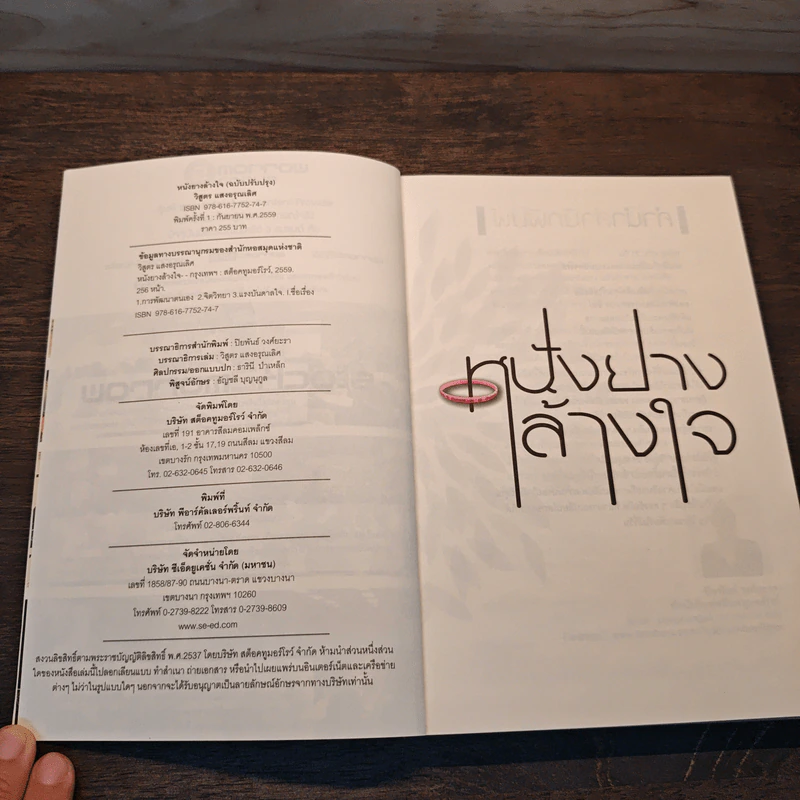 หนังยางล้างใจ (ฉบับปรับปรุง)
วิสูตร แสงอรุณเลิศ
ISBN 978-616-7752-74-7
พิมพ์ครั้งที่ 1 : กันยายน พ.ศ.2559
ราคา 255 บาท
ข้อมูลทางบรรณานุกรมของสำนักหอสมุดแห่งชาติ
วิสูตร แสงอรุณเลิศ
หนังยางล้างใจ- - กรุงเทพฯ : สต็อคทูมอร์โรว์, 2559.
256 หน้า.
1.การพัฒนาตนเอง 2.จิตวิทยา 3.แรงบันดาลใจ. I.ชื่อเรื่อง
ISBN: 978-616-7752-74-7
บรรณาธิการสำนักพิมพ์ : ปิยพันธ์ วงศ์ยะรา
บรรณาธิการเล่ม : วิสูตร แสงอรุณเลิศ
ศิลปกรรม/ออกแบบปก : ธารินี ป่าเหล็ก
พิสูจน์อักษร : ธัญชลี บุญนุกูล
จัดพิมพ์โดย
บริษัท สต็อคทูมอร์โรว์ จำกัด
เลขที่ 191 อาคารสีลมคอมเพล็กซ์
ห้องเลขที่เอ, 1-2 ชั้น 17,19 ถนนสีลม แขวงสีลม
เขตบางรัก กรุงเทพมหานคร 10500
โทร. 02-632-0645 โทรสาร 02-632-0646
พิมพ์ที่
บริษัท พีอาร์คัลเลอร์พริ้นท์ จำกัด
โทรศัพท์ 02-806-6344
จัดจำหน่ายโดย
บริษัท ซีเอ็ดยูเคชั่น จำกัด (มหาชน)
เลขที่ 1858/87-90 ถนนบางนา-ตราด แขวงบางนา
เขตบางนา กรุงเทพฯ 10260
โทรศัพท์ 0-2739-8222 โทรสาร 0-2739-8609
www.se-ed.com
สงวนลิขสิทธิ์ตามพระราชบัญญัติลิขสิทธิ์ พ.ศ.2537 โดยบริษัท สต็อคทูมอร์โรว์ จำกัด ห้ามนำส่วนหนึ่งส่วน
ใดของหนังสือเล่มนี้ไปลอกเลียนแบบ ทำสำเนา ถ่ายเอกสาร หรือนำไปเผยแพร่บนอินเตอร์เน็ตและเครือข่าย
ต่างๆ ไม่ว่าในรูปแบบใดๆ นอกจากจะได้รับอนุญาตเป็นลายลักษณ์อักษรจากทางบริษัทเท่านั้น
หนังยาง
ล้างใจ